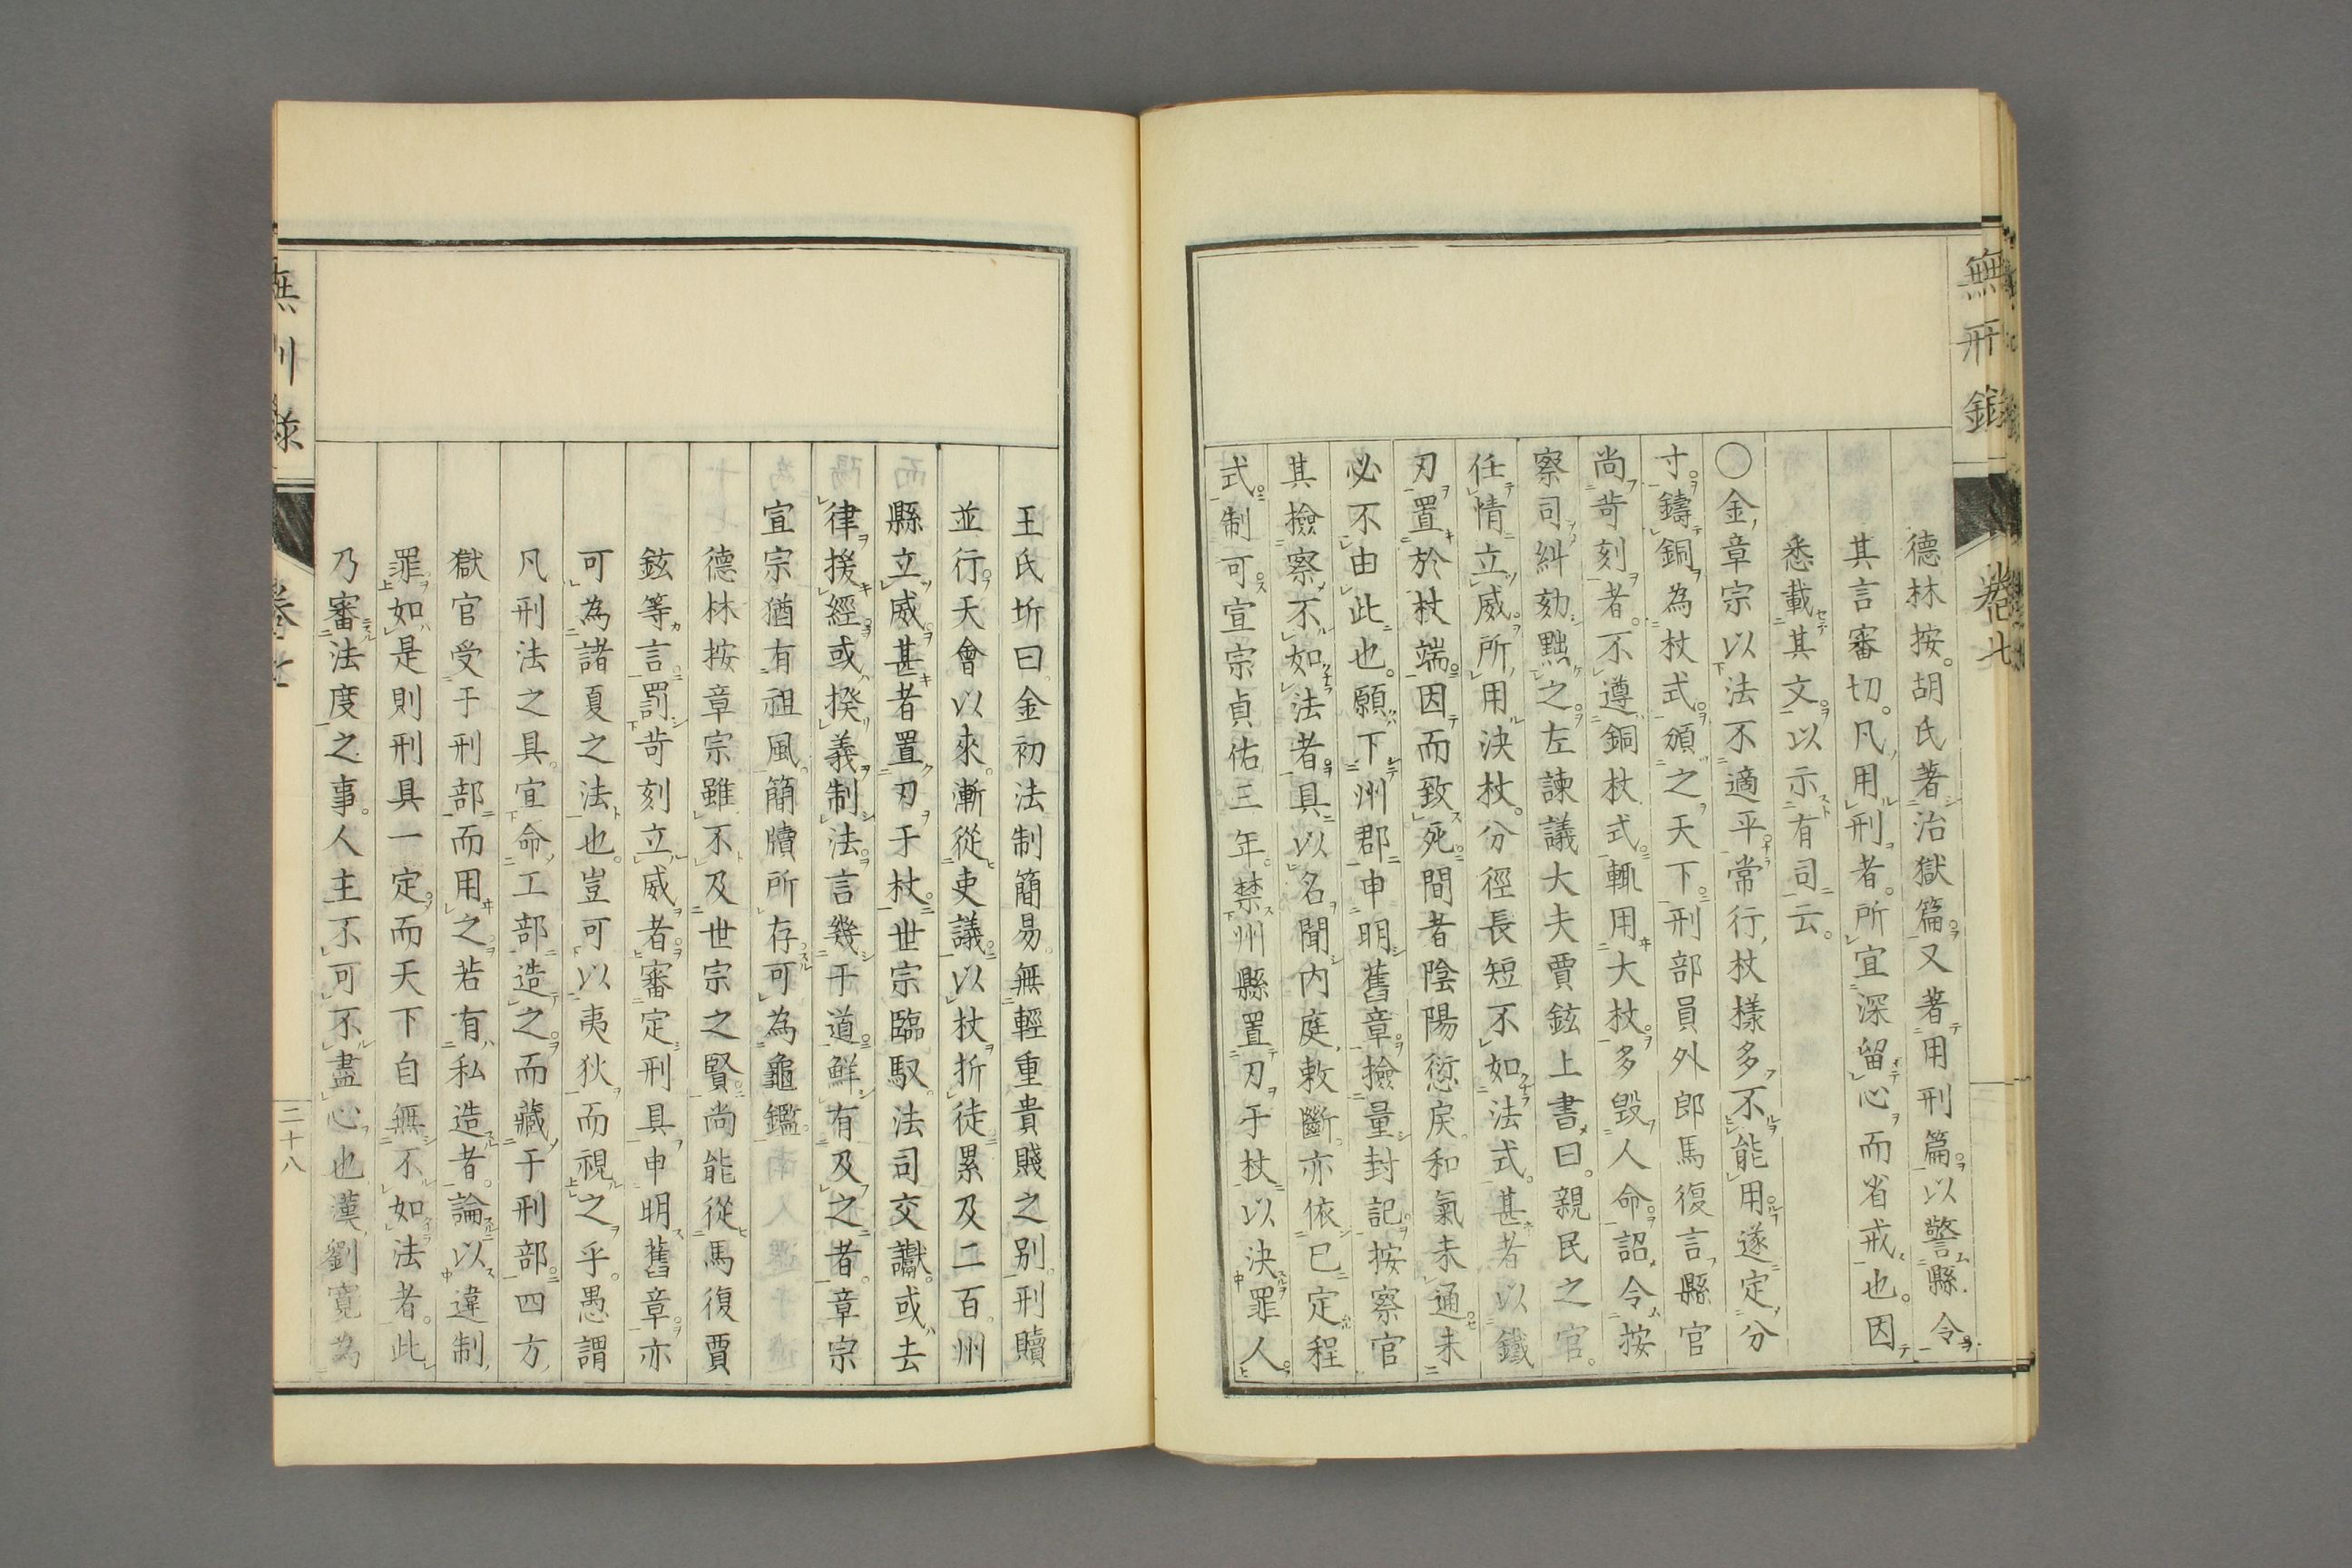 無刑錄
卷七
德林按。胡氏著治獄篇。又著用刑篇。以警縣令。
其言審切。凡用刑者。所宜深留心而省戒也。因
悉載其文。以示有司云。
〇金章宗以法不適平。常行杖樣多不能用。遂定分
寸。鑄銅為杖式。頒之天下。刑部員外郎馬復言。縣官
尚苛刻者。不遵銅杖式。輒用大杖。多毀人命。詔令按
察司糾劾黜之。左諫議大夫賈鉉上書曰。親民之官。
任情立威。所用決杖。分徑長短不如法式。甚者以鐵
刃置於杖端。因而致死。間者陰陽愆戾。和氣未通。未
必不由此也。願下州郡申明舊章。撿量封記。按察官
其撿察不如法者。具以名聞。內庭敕斷。亦依已定程
式。制可。宣宗貞佑三年。禁州縣置刃于杖以決罪人。
王氏圻曰。金初法制簡易。無輕重貴賤之別。刑贖
並行。天會以來。漸從吏議。以杖折徒。累及二百。州
縣立威。甚者置刃于杖。世宗臨馭。法司交讞。或去
律援經。或揆義制法。言幾于道。鮮有及之者。章宗
宣宗猶有祖風。簡牘所存。可為龜鑑。
德林按。章宗雖不及世宗之賢。尚能從馬復賈
鉉等言。罰苛刻立威者。審定刑具。申明舊章。亦
可為諸夏之法也。豈可以夷狄而視之乎。愚謂
凡刑法之具。宜命工部造之。而藏于刑部。四方
獄官受于刑部而用之。若有私造者。論以違制
罪。如是則刑具一定。而天下自無不如法者。此
乃審法度之事。人主不可不盡心也。漢劉寬為
無刑錄
卷七
二十八